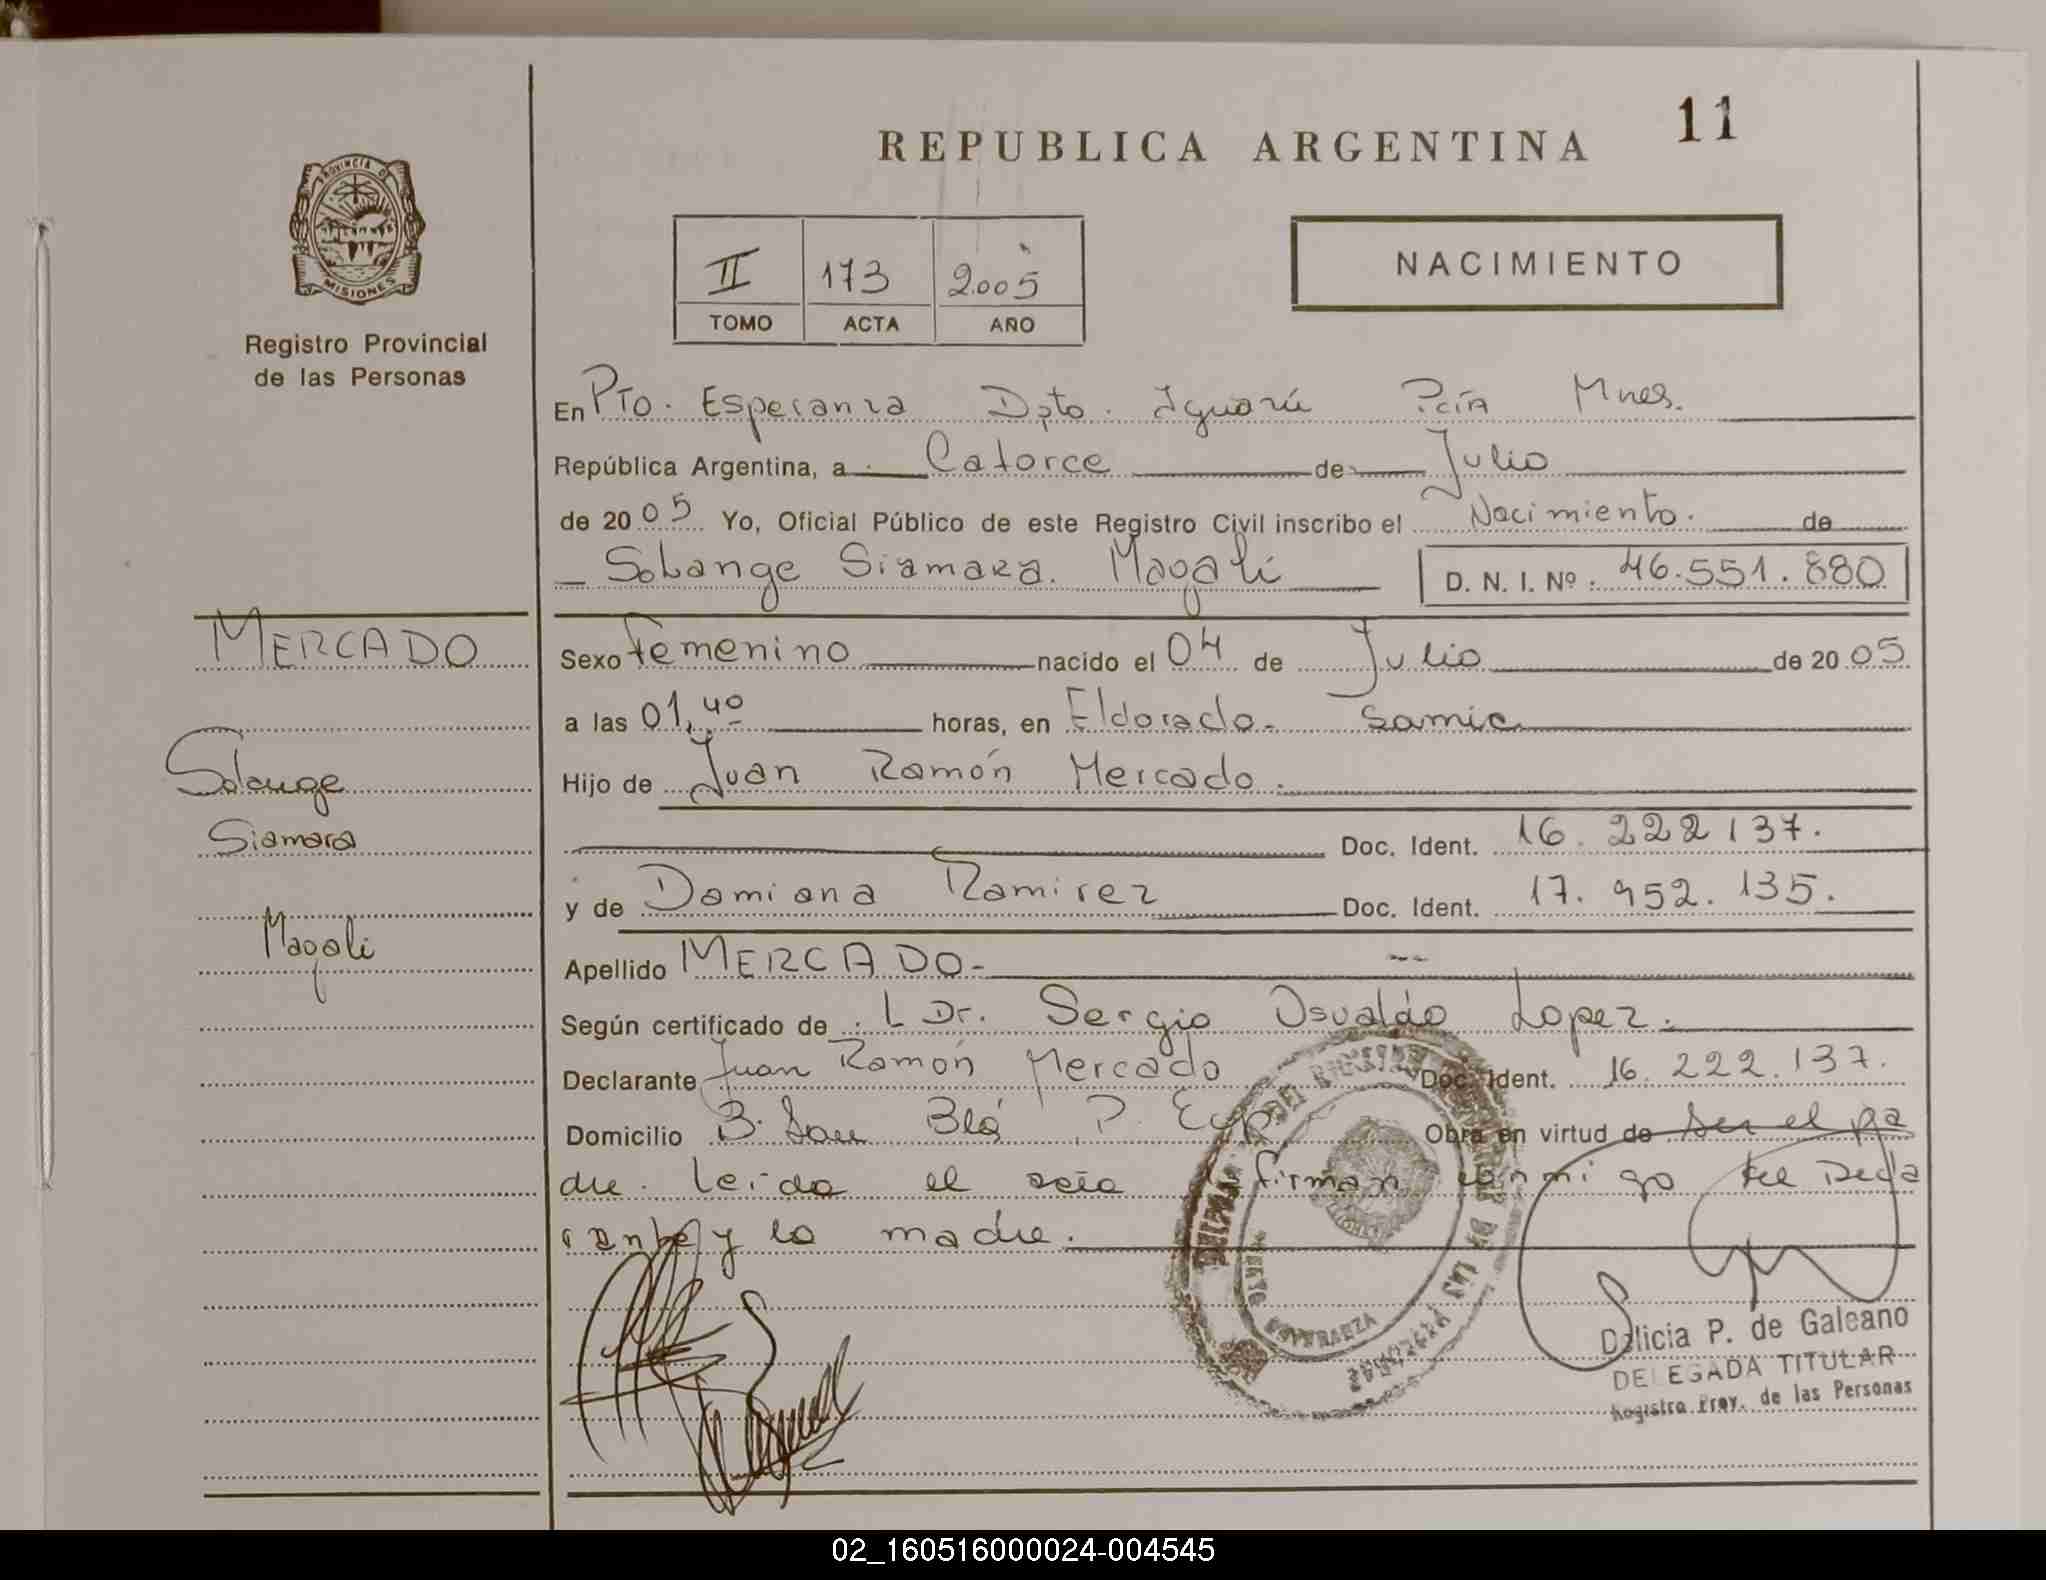 11
REPUBLICA ARGENTINA
PROVINCIA DE
MISIONES
Registro Provincial
de las Personas
II 173 2.005
TOMO ACTA AÑO
NACIMIENTO
En Pto. Esperanza Dpto. Iguazú Pcia Mnes.
República Argentina, a Catorce de Julio
de 2005 Yo, Oficial Público de este Registro Civil inscribo el Nacimiento. de
Solange Siamara Magali D. N. I. Nº 46.551.880
MERCADO
Solange
Siamara
Magali
Sexo Femenino nacido el 04 de Julio de 2005
a las 01,40 horas, en Eldorado - Samic
Hijo de Juan Ramón Mercado.
Doc. Ident. 16.222137.
y de Damiana Ramirez Doc. Ident. 17.952.135.
Apellido MERCADO-
Según certificado de Dr. Sergio Osvaldo Lopez.
Declarante Juan Ramón Mercado Doc. Ident. 16.222.137.
Domicilio B. San P. Obra en virtud de ser el pa
dre. Leida el firman conmigo el Decla
rante y la madre.
PUERTO ESPERANZA
DE LAS PERSONAS
Delicia P. de Galeano
DELEGADA TITULAR
Registro Prov. de las Personas
02_160516000024-004545